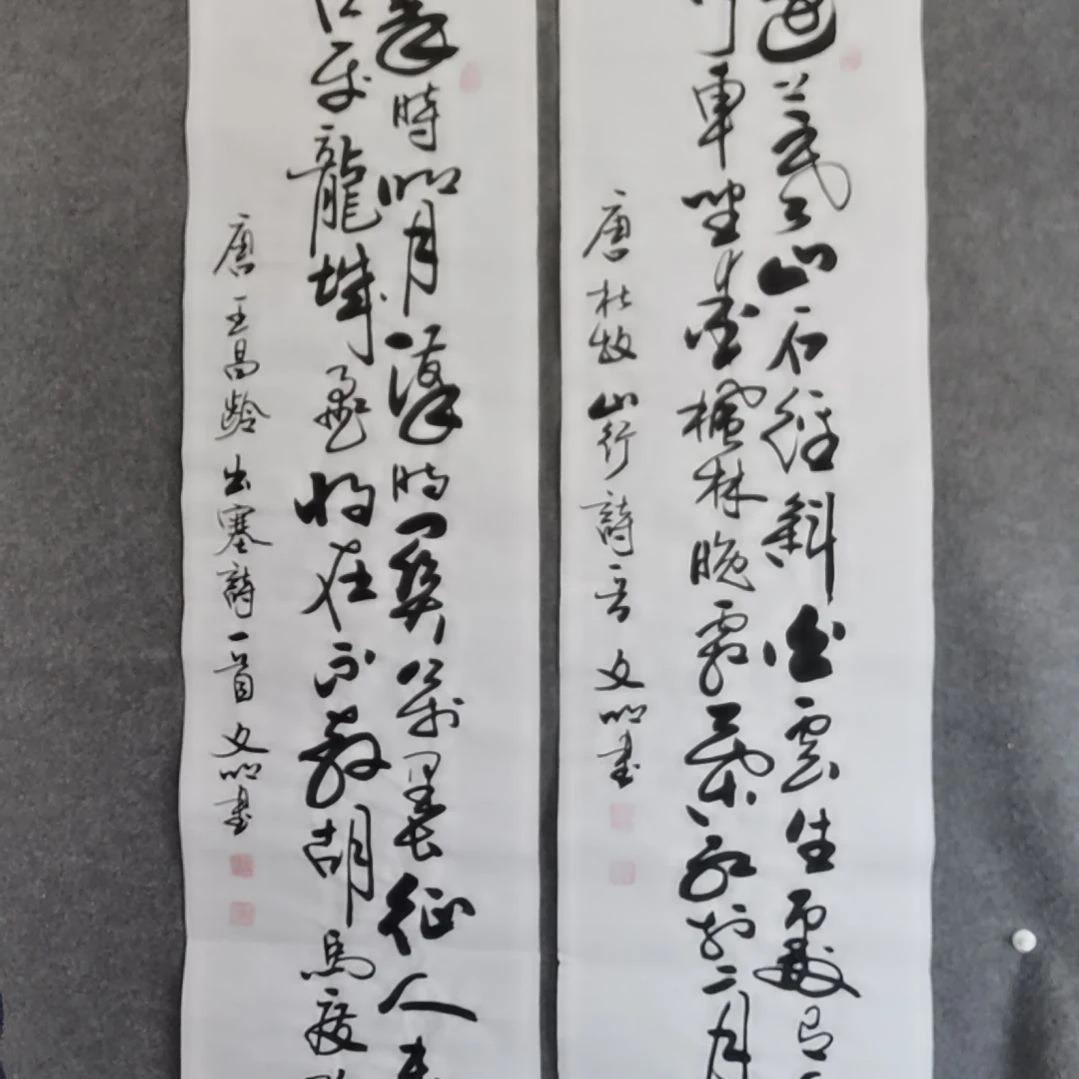 遠上寒山石徑斜白雲生處
車坐愛楓林晚霜葉紅於二月
唐杜牧山行詩一首文明書
秦時明月漢時關萬里長征人未
使龍城飛將在不教胡馬度
唐王昌齡出塞詩一首文明書